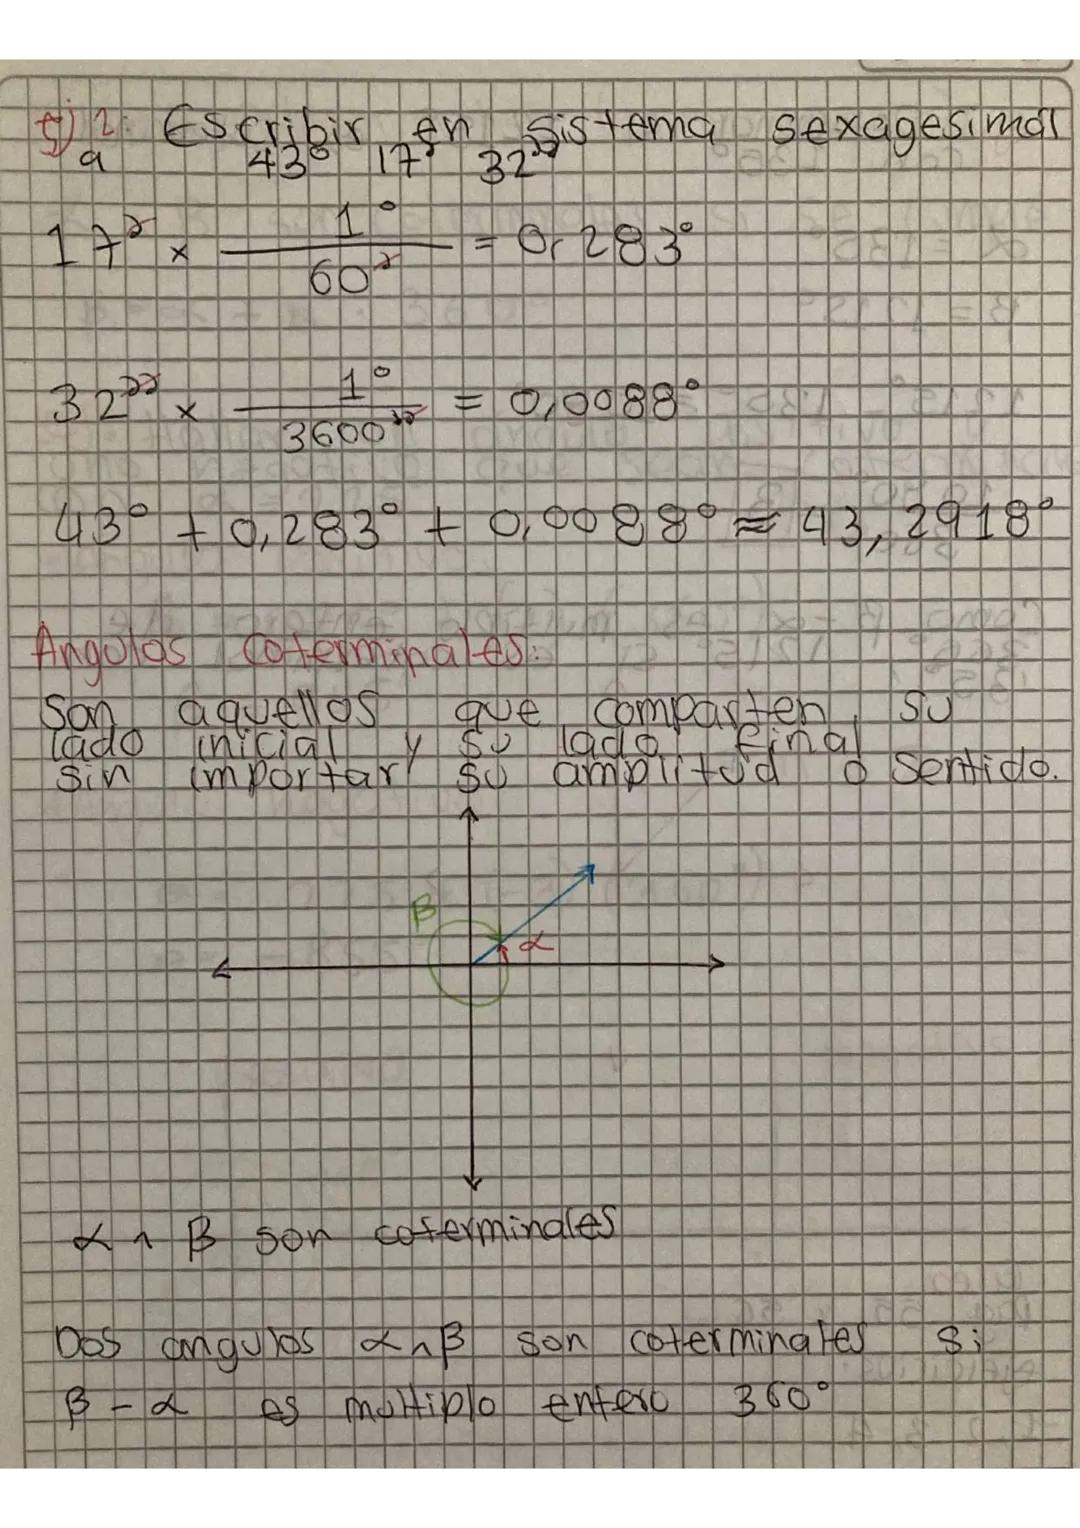 Ej 2: Escribir en sistema sexagesimal
a 43° 17' 32''
17' × 1° / 60' = 0,283°
32'' × 1° / 3600'' = 0,0088°
43° + 0,283° + 0,0088° ≈ 43,2918°
Angulos coterminales:
Son aquellos que comparten su
lado inicial y su lado final
sin importar su amplitud o sentido.
β
α
α ∧ β son coterminales
Dos angulos α ∧ β son coterminales si
β - α es multiplo entero 360°